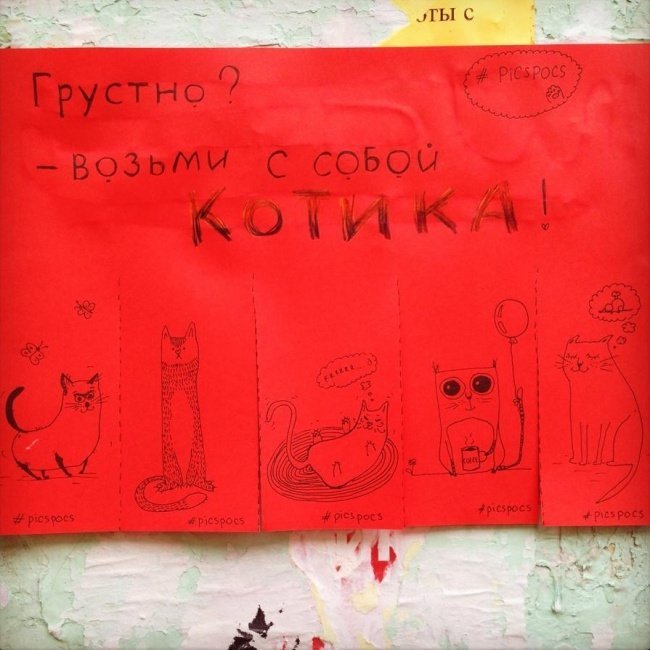 оты с
Грустно?
# PICSPOCS
– Возьми с собой
КОТИКА!
COFFEE
# picspocs
# picspocs
# picspocs
# picspocs
# picspocs